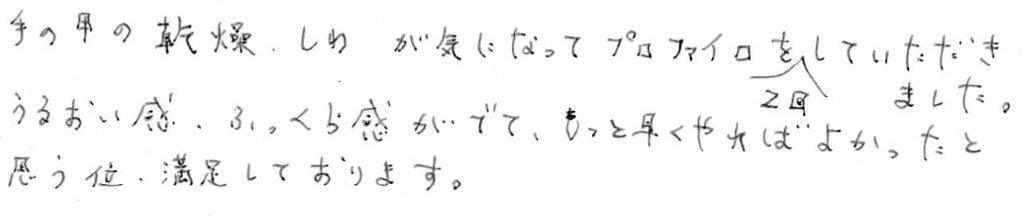 手の甲の乾燥、しわが気になってプロファイロを2回していただき
ました。
うるおい感、ふっくら感がでて、もっと早くやればよかったと
思う位、満足しております。